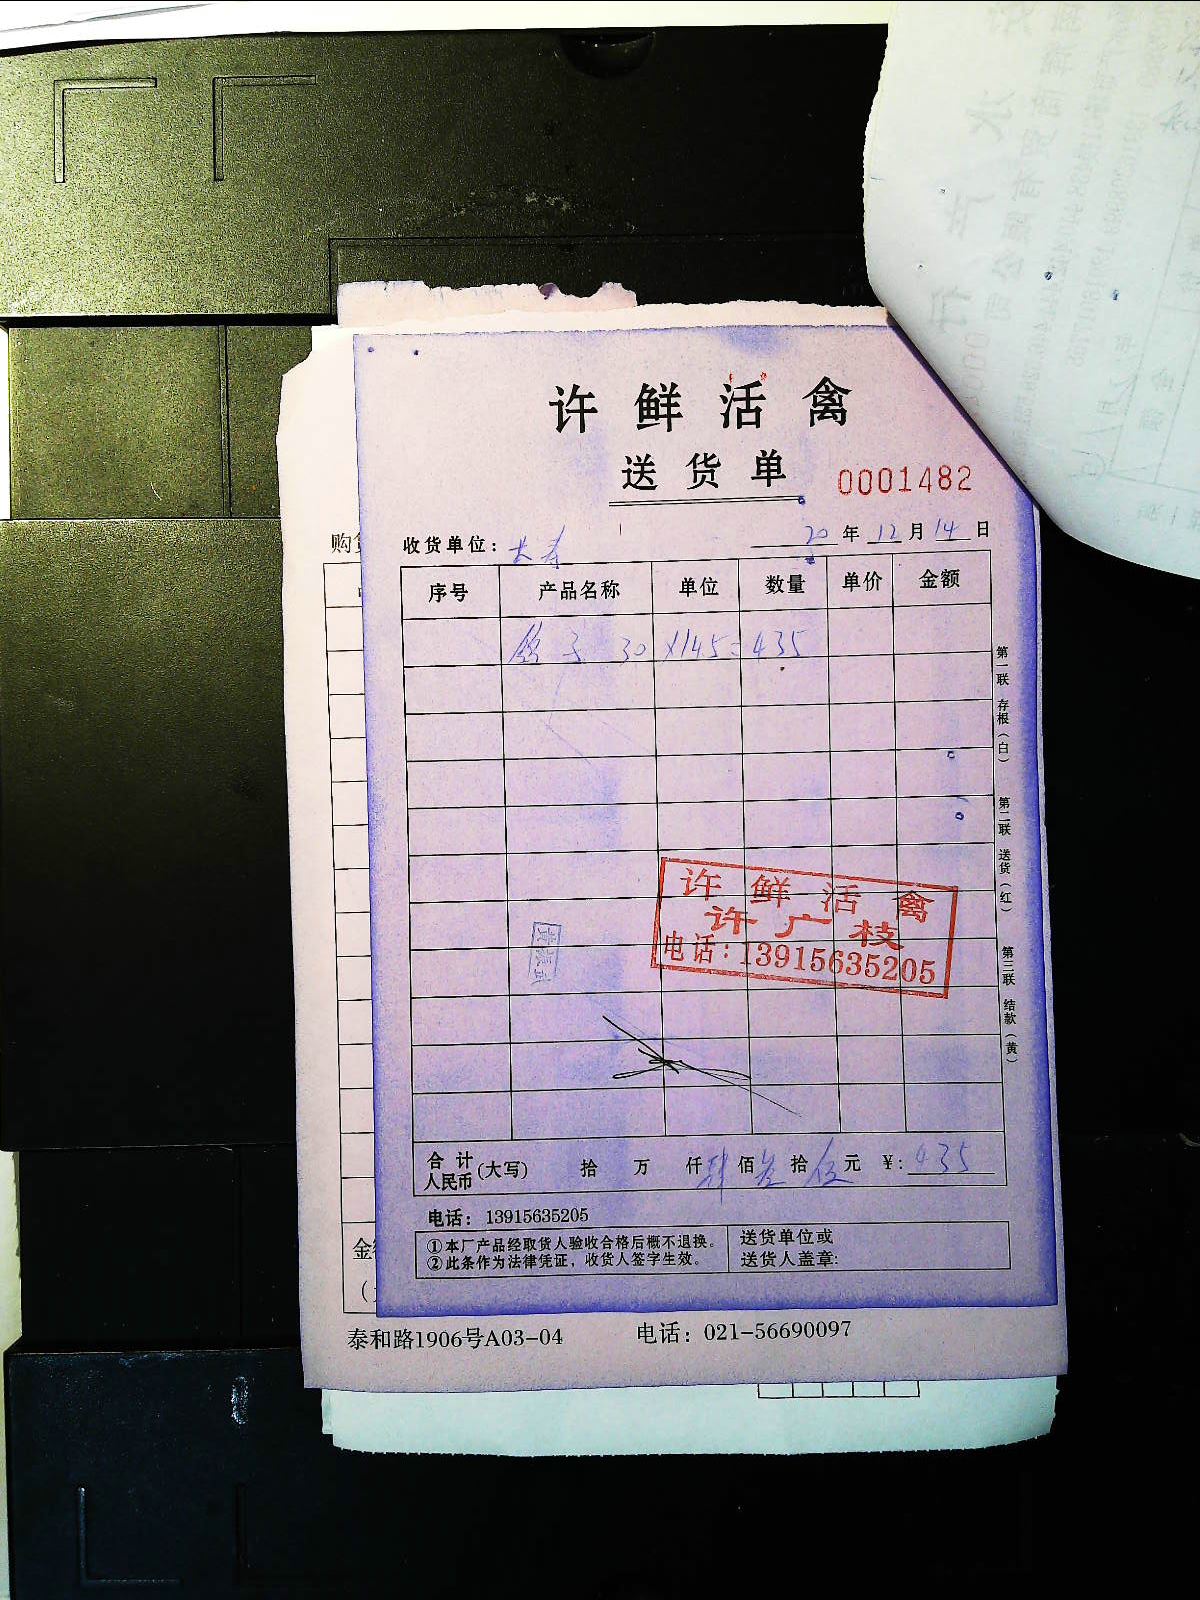 许鲜活禽
送货单
0001482
收货单位: 长寿 20年12月14日
序号 产品名称 单位 数量 单价 金额
鸽子 30 X145=435
第一联 存根(白) 第二联 送货(红) 第三联 结款(黄)
许鲜活禽
许广枝
电话:13915635205
合计人民币(大写) 拾 万 仟肆佰叁拾伍元 ¥:435
电话: 13915635205
①本厂产品经取货人验收合格后概不退换。
②此条作为法律凭证, 收货人签字生效。
送货单位或
送货人盖章:
泰和路1906号A03-04 电话: 021-56690097